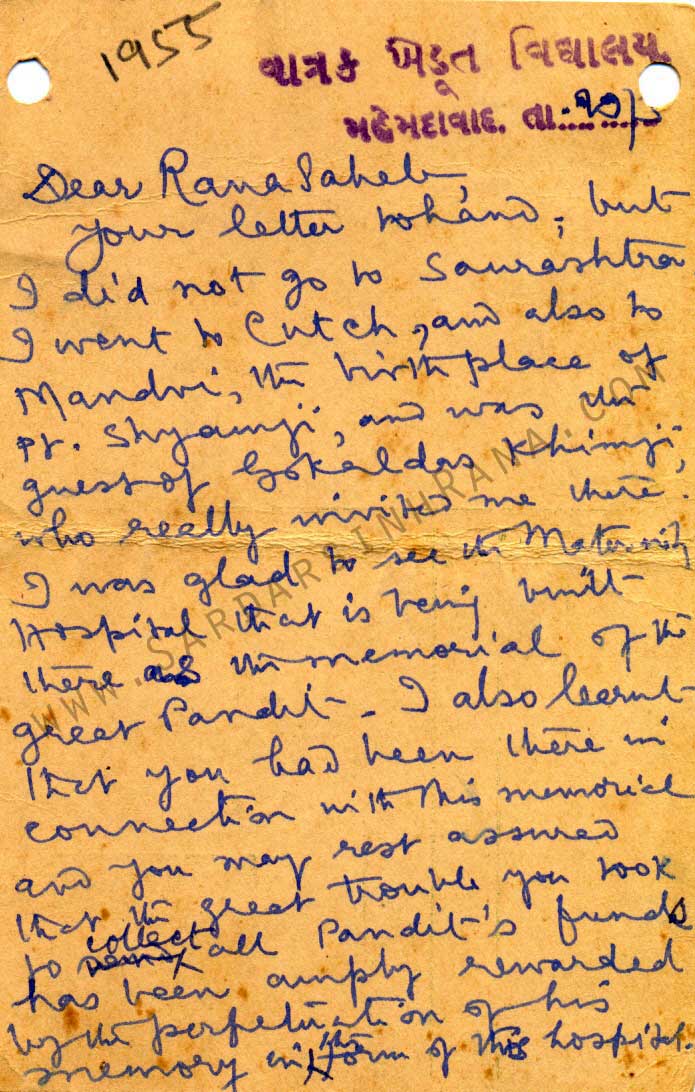 1955
વાત્રક ખેડૂત વિદ્યાલય
મહેમદાવાદ. તા.
Dear Rana Saheb,
your letter to hand; but
I did not go to Saurashtra
I went to Cutch, and also to
Mandvi, the birth place of
Pt. Shyamji, and was the
guest of Gokaldas Khimji,
who really invited me there.
I was glad to see the Maternity
Hospital that is being built
there as the memorial of the
great Pandit. I also learnt
that you had been there in
connection with this memorial
and you may rest assured
that the great trouble you took
to collect all Pandit's funds
has been amply rewarded
by the perpetuation of his
memory in the form of this hospital.
WWW.SARDARSINHRANA.COM